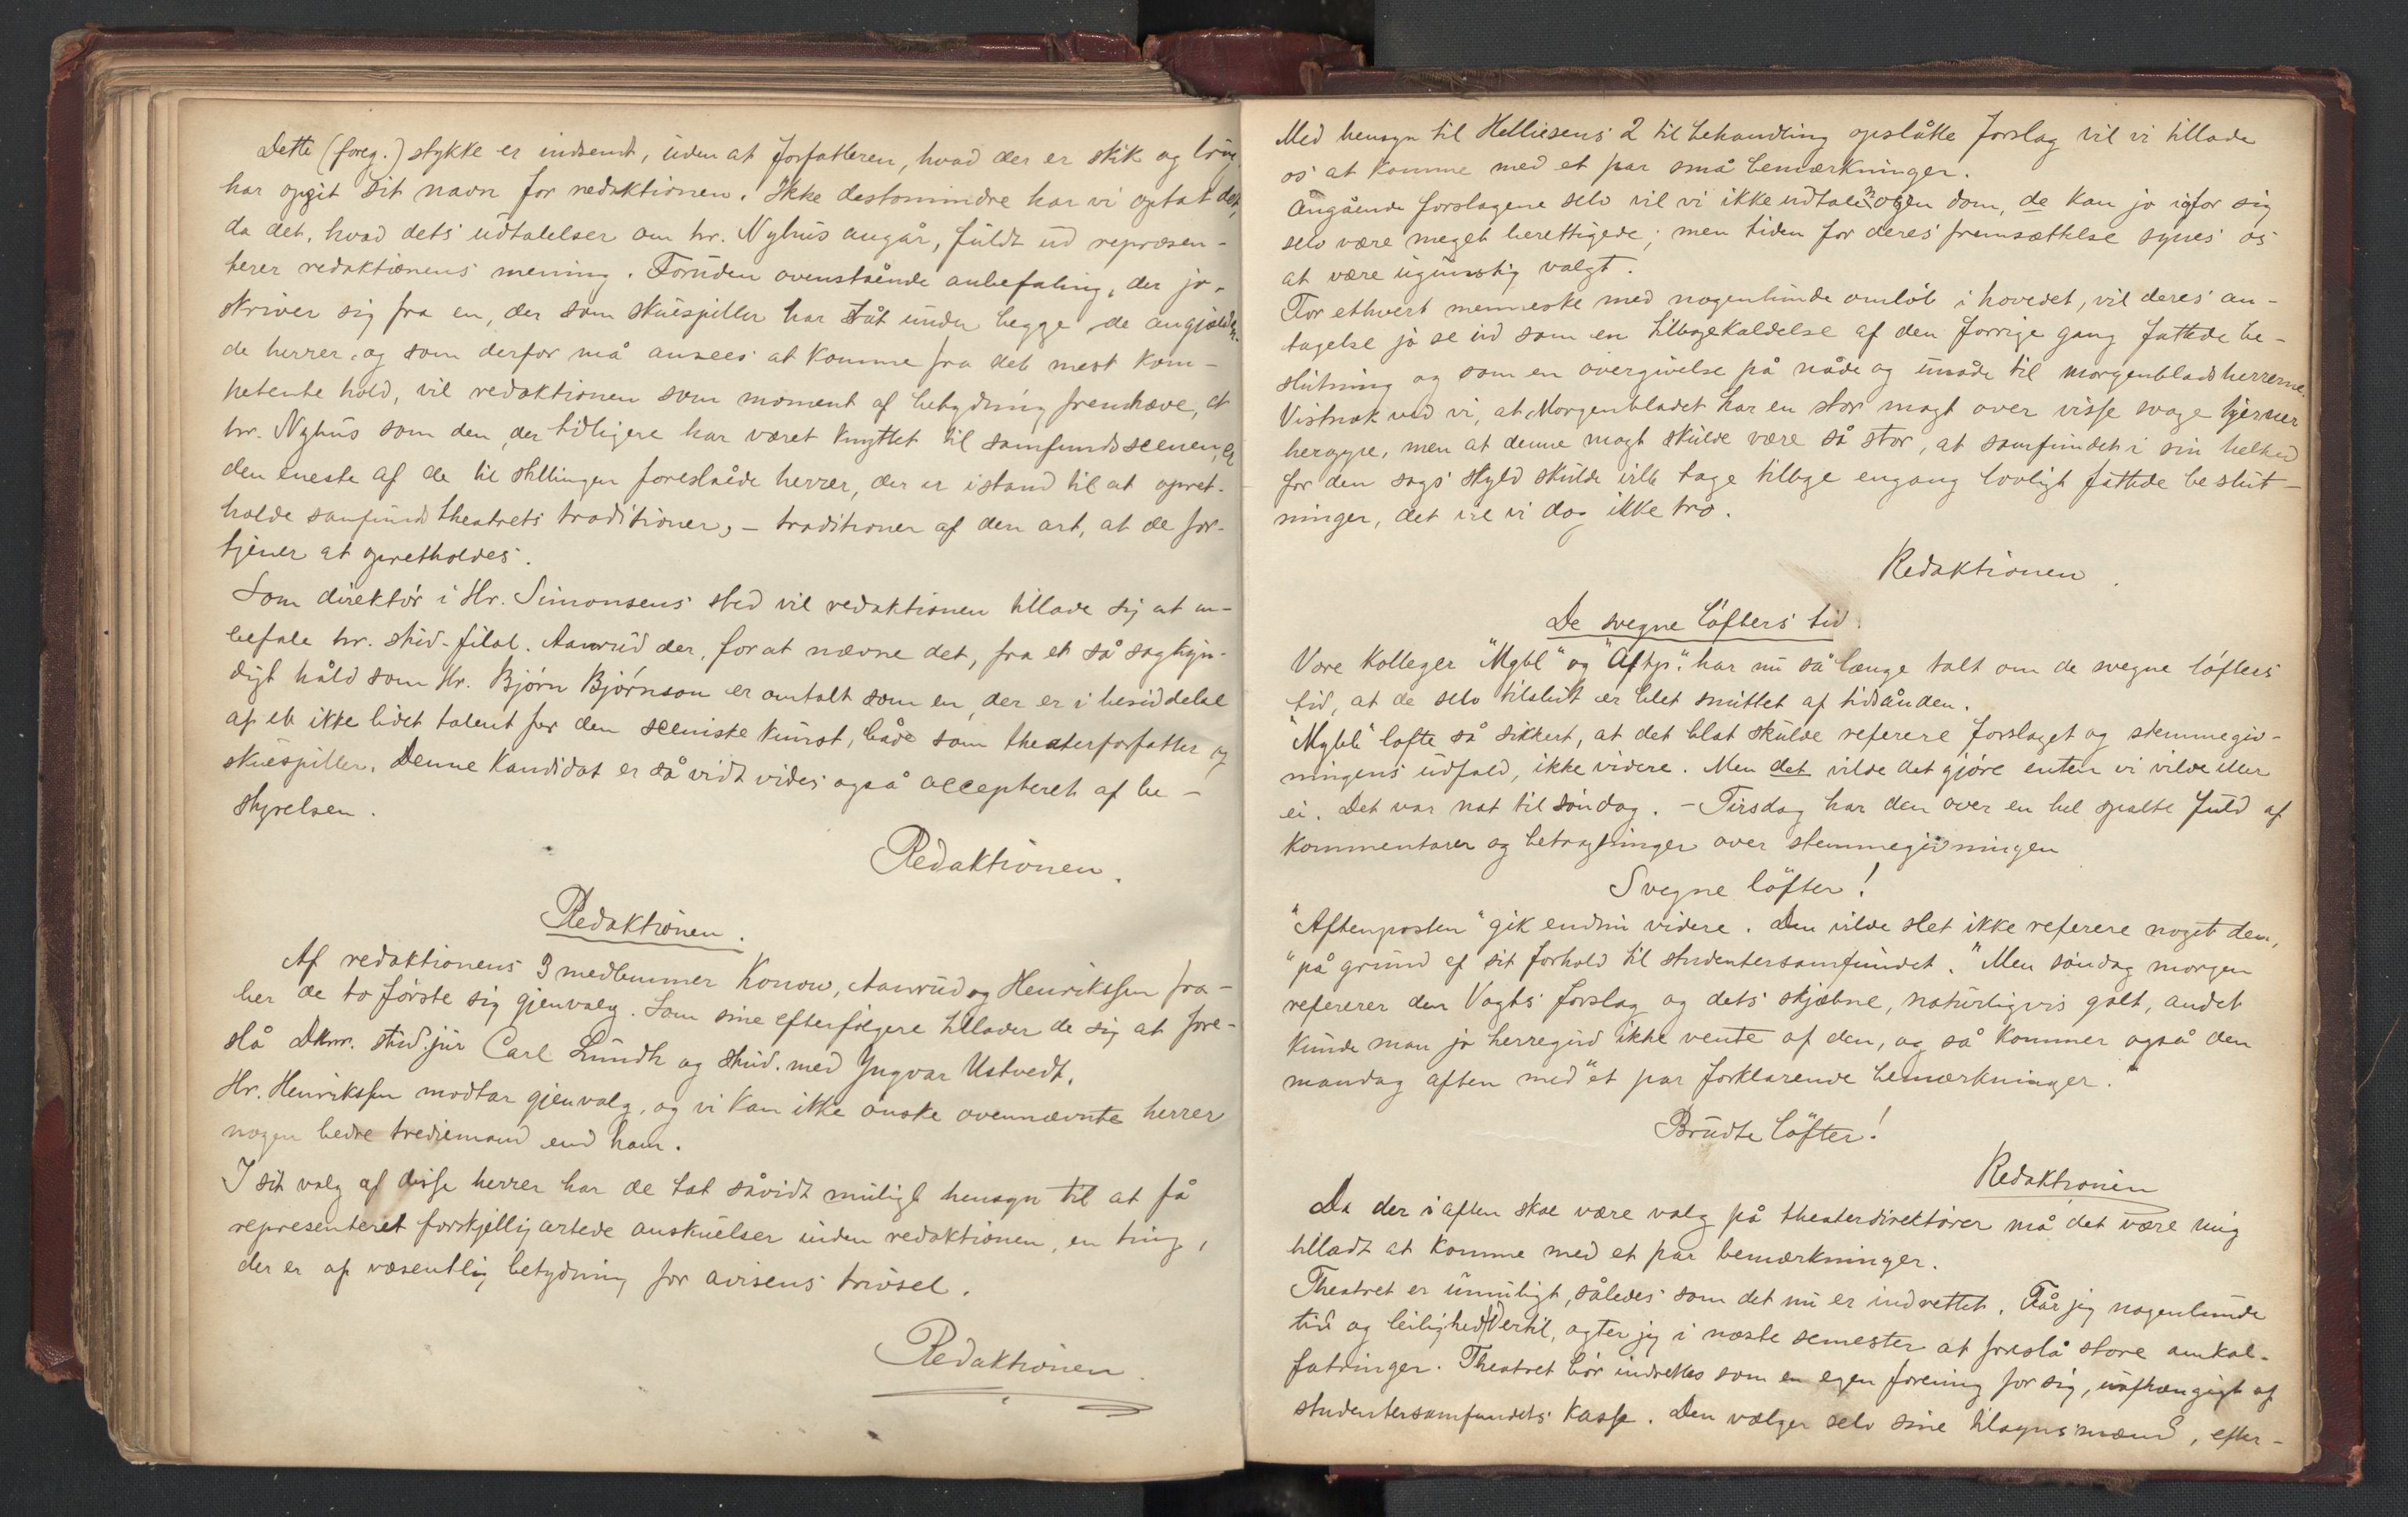 Dette (foreg.) stykke er indsendt, uden at forfatteren, hvad der er skik og brug,
har opgit sit navn for redaktionen. Ikke destomindre har vi optat det,
da det, hvad dets udtalelser om hr. Nyhus angår, fuldt ud repræsen-
terer redaktionens mening. Foruden ovenstående anbefaling, der jo
skriver sig fra en, der som skuespiller har ståt under begge de angjælden-
de herrer, og som derfor må ansees at komme fra det mest kom-
petente hold, vil redaktionen som moment af betydning fremhæve, at
hr. Nyhus som den, der tidligere har været knyttet til samfundsscenen, er
den eneste af de til stillingen foreslåede herrer, der er istand til at opret-
holde samfundstheatrets traditioner, – traditioner af den art, at de for-
tjener at opretholdes.
Som direktör i Hr. Simonsens sted vil redaktionen tillade sig at an-
befale hr. stud. filol. Aanrud der, for at nævne det, fra et så sagkyn-
digt håld som Hr. Bjørn Bjørnson er omtalt som en, der er i besiddelse
af et ikke lidet talent for den sceniske kunst, både som theaterforfatter og
skuespiller. Denne kandidat er så vidt vides også accepteret af be-
styrelsen.
Redaktionen.
Redaktionen.
Af redaktionens 3 medlemmer Konow, Aanrud og Henrikssen fra-
ber de to første sig gjenvalg. Som sine efterfølgere tillader de sig at fore-
slå Dhrr. stud. jur Carl Lundh og stud. med Yngvar Ustvedt.
Hr. Henrikssen modtar gjenvalg, og vi kan ikke ønske ovennævnte herrer
nogen bedre trediemand end ham.
I sit valg af disse herrer har de tat såvidt muligt hensyn til at få
representeret forskjellig artede anskuelser inden redaktionen, en ting,
der er af væsentlig betydning for avisens trivsel.
Redaktionen.
Med hensyn til Helliesens 2 til behandling opslåtte forslag vil vi tillade
os at komme med et par små bemærkninger.
Angående forslagene selv vil vi ikke udtale nogen dom, de kan jo i og for sig
selv være meget berettigede; men tiden for deres fremsættelse synes os
at være ugunstig valgt.
For ethvert menneske med nogenlunde omløb i hovedet, vil deres an-
tagelse jo se ud som en tilbagekaldelse af den forrige gang fattede be-
slutning og som en overgivelse på nåde og unåde til morgenbladsherrerne.
Vistnok ved vi, at Morgenbladet har en stor magt over visse svage hjerner
heroppe, men at denne magt skulde være så stor, at samfundet i sin helhed
for den sags skyld skulde ville tage tilbage engang lovligt fattede beslut-
ninger, det vil vi dog ikke tro.
Redaktionen.
De svegne löfters tid.
Vore kolleger "Mgbl" og "Aftp." har nu så længe talt om de svegne löfters
tid, at de selv tilslut er blet smittet af tidsånden.
"Mgbl" lofte så sikkert, at det blot skulde referere forslaget og stemmegiv-
ningens udfald, ikke videre. Men det vilde det gjøre enten vi vilde eller
ei. Det var nat til söndag. – Tirsdag har den over en hel spalte fuld af
kommentarer og betragtninger over stemmegivningen
Svegne löfter!
"Aftenposten" gik endnu videre. Den vilde slet ikke referere noget den,
"på grund af sit forhold til studentersamfundet." Men söndag morgen
refererer den Vogts forslag og dets skjæbne, naturligvis galt, andet
kunde man jo herregud ikke vente af den, og så kommer også den
mandag aften med "et par forklarende bemærkninger."
Brudte löfter!
Redaktionen
Da der i aften skal være valg på theaterdirektører må det være mig
tilladt at komme med et par bemærkninger.
Theatret er umuligt, således som det nu er indrettet. Får jeg nogenlunde
tid og leilighed dertil, agter jeg i næste semester at foreslå store omkal-
fatringer. Theatret bör indrettes som en egen forening for sig, uafhængigt af
studentersamfundets kasse. Den vælger selv sine tilsynsmænd, efter-